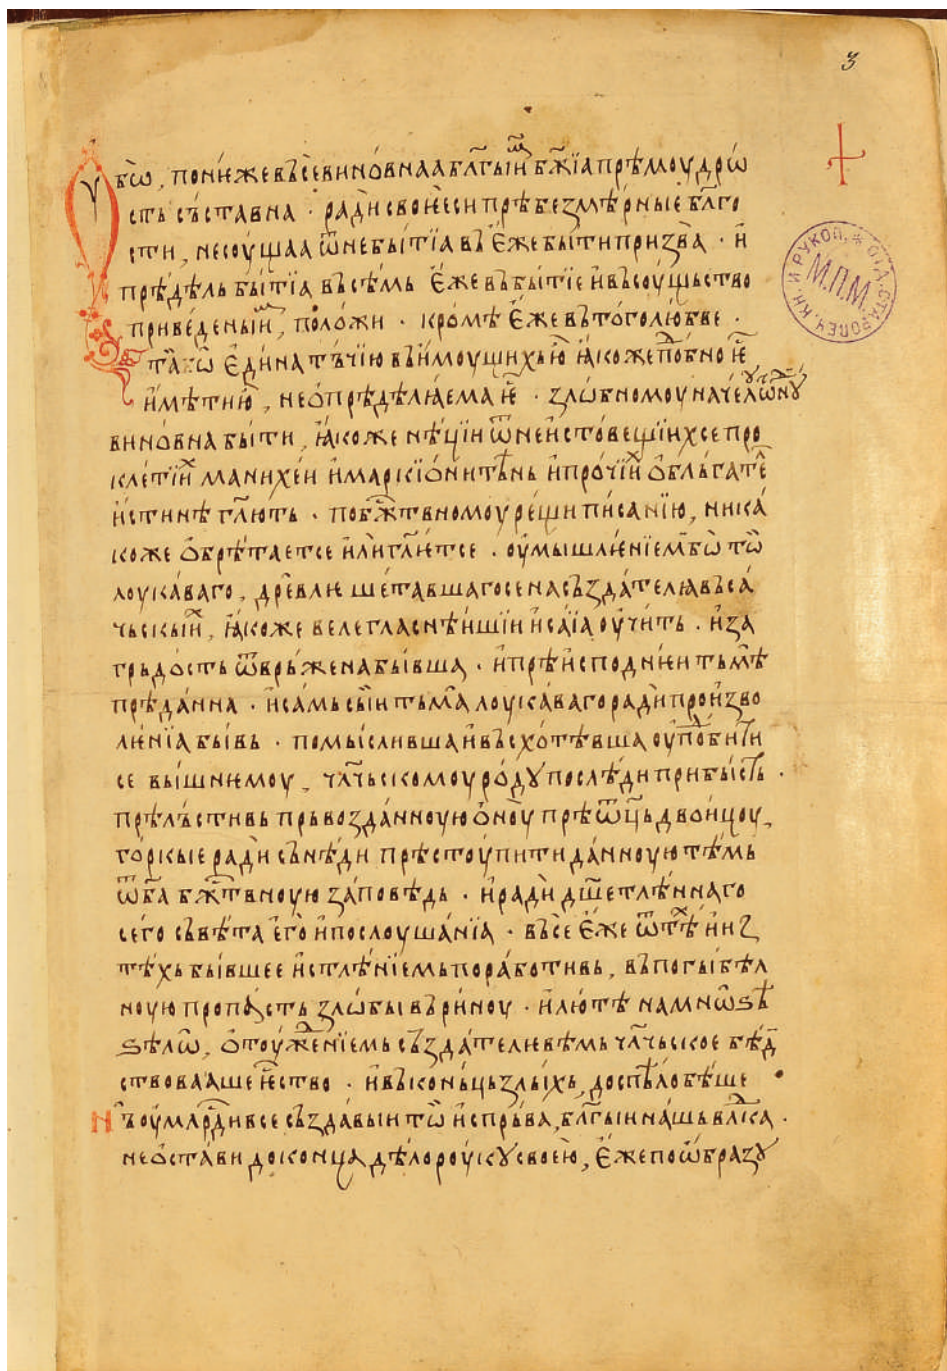 3
Ѹбѡ, понѥже въсевиновнаа бл҃гыи бж҃їа прѣмоудрѡ
сть съставна · ради своѥеси прѣбезмѣрные бл҃го
сти, несоущаа ѿ небытїа въ еже быти призва · и
прѣдѣль бытїа въсѣмь еже въ бытїе и въ соущьство
приведеныиⷨ, положи · кромѣ еже въ того любве ·
единатъчїю въ имоущихь ꙗкоже поⷣбно ѥⷭ
имѣтниⷨ, неопрѣдѣлꙗема ѥⷭ · злѡбномоу
виновна быти, ꙗкоже нѣцїи ѿ неистовещїихсе про
клетїиⷯ манихеи и маркїѡнитѣнь и прочїиⷯ облъгатеⷧ
истинѣ гл҃ють · по бжⷭтвномоу рещи писанїю, ника
коже обрѣтаетсе или гл҃ѥтсе · оумышлѥнїемⷨ бѡ тѡⷢ
лоукаваго, древлѥ шетавшагосе на създателꙗ въса
чьскыиⷯ, ꙗкоже велегласнѣишїи исаїа оучить · и за
грьдость ѿврьжена бывша · и прѣисподнѥи тьмѣ
прѣданна · и самь сыи тьма лоукаваго ради произво
лѥнїа бывь · помысливша и въсхотѣвша оупоⷣбити
се вышнѥмоу, чл҃чьскомоу родꙋ послѣди прибысть ·
прѣльстивь прьвозданноую оноу прѣѿць двоицоу,
горкые ради сънѣди прѣстоупити данноую тѣмь
ѿ ба бжⷭтвноую заповѣдь · и ради дш҃етлѣннаго
сего съвѣта его и послоушанїа · въсе еже ѿ тѣⷯ и из
тѣхь бывшее истлѣнїемь поработивь, въ погыбѣл
ноую пропасть злѡбы въриноу · и лютѣ намнѡѕѣ
ѕѣлѡ, отоужⷣенїемь създателꙗ вѣмь чл҃чьское бѣⷣ
ствовааше ѥⷭство · и въ коньць злыхь, доспѣло бѣше
Нъ оумлрⷭдивсе създавыи тѡⷢ испрьва, бл҃гыи нашь влⷣка ·
неостави до конца дѣло роукꙋ своею, еже по ѡбразꙋ
ОТД. СТАРОПЕЧ. КН. И РУКОП.
М.П.М.